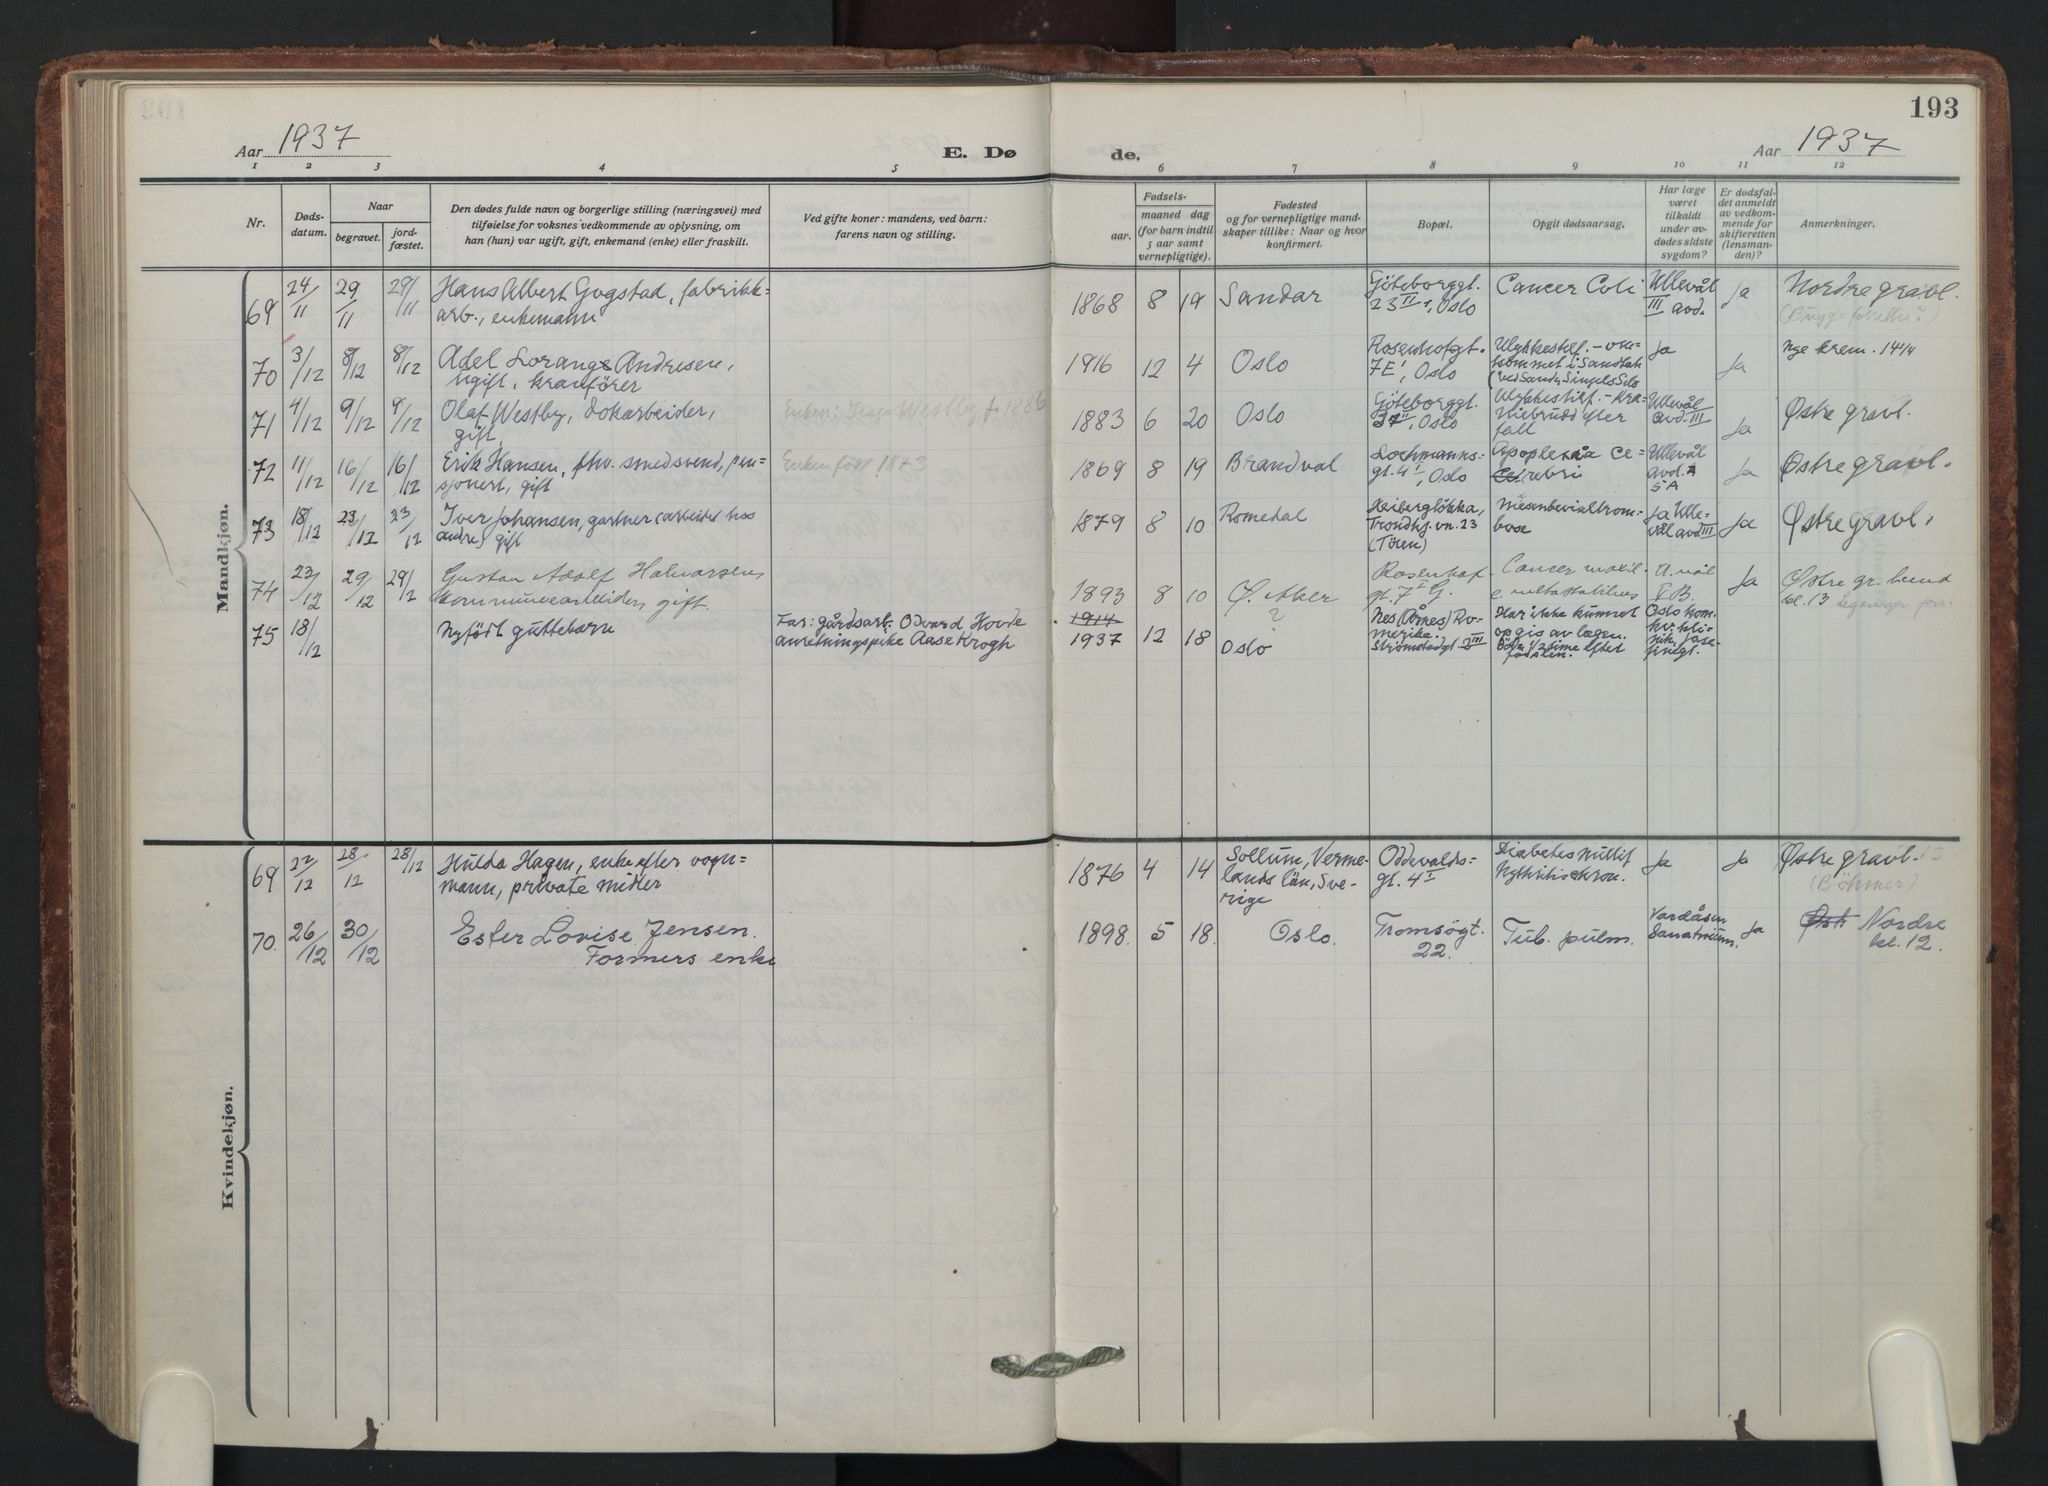 193
Aar 1937
E. Dø
de.
Aar 1937
1 2 3 4 5 6 7 8 9 10 11 12
Nr.
Døds-
datum.
Naar
begravet.
jord-
fæstet.
Den dødes fulde navn og borgerlige stilling (næringsvei) med
tilføielse for voksnes vedkommende av oplysning, om
han (hun) var ugift, gift, enkemand (enke) eller fraskilt.
Ved gifte koner: mandens, ved barn:
farens navn og stilling.
Fødsels-
aar.
maaned dag
(for barn indtil
5 aar samt
vernepligtige).
Fødested
og for vernepligtige mand-
skaper tillike: Naar og hvor
konfirmert.
Bopæl.
Opgit dødsaarsag.
Har læge
været
tilkaldt
under av-
dødes sidste
sygdom?
Er dødsfal-
det anmeldt
av vedkom-
mende for
skifteretten
(lensman-
den)?
Anmerkninger.
Mandkjøn.
69 24/11 29/11 29/11 Hans Albert Gogstad, fabrikk=
arb., enkemann
1868 8 19 Sandar
Göteborggt.
23 II, Oslo
Cancer Coli
Ullevål
III avd.
Ja
Nordre gravl.
70 3/12 8/12 8/12 Adel Lorange Andresen,
ugift, kranförer
1916 12 4 Oslo
Rosenhofgt.
7E, Oslo
Ulykkestilf. - om-
kommet i Sandtak
Ja
Ja
Nye krem. 14/4
71 4/12 9/12 9/12 Olaf Westby, dokarbeider,
gift,
Enken: Inga Westby f. 1886
1883 6 20 Oslo
Göteborggt.
37 II, Oslo
Ulykkestilf. - kra-
niebrudd efter
fall
Ullevål
avd. III
Ja
Østre gravl.
72 11/12 16/12 16/12 Erik Hansen, fhv. smedsvend, pen=
sjonert, gift
Enken født 1873
1869 8 19 Brandval
Lochmanns=
gt. 4 I, Oslo
Apoplexia ce=
rebri
Ullevål
avd.
5A
Ja
Østre gravl.
73 18/12 23/12 23/12 Iver Johansen, gartner (arbeidet hos
andre) gift
1879 8 10 Romedal
Heiberglökka,
Trondhj.vn. 23
(Töien)
Mesenterialtrom=
bose
Ja Ulle=
vål avd III
Ja
Østre gravl.
74 23/12 29/12 29/12 Gustav Adolf Halvorsen
kommunearbeider, gift.
1893 8 10 Ø. Aker
Rosenhof
gt. 7 I G.
Cancer maxil.
c. metastatibus
U. vål
Ja
Østre gr. lund
kl. 13
75 18/12 Nyfödt guttebarn
Far: gårdsarb. Odvard Hovde
anretningspike Aase Krogh
1914 ?
1937 12 18 Oslo
Nes (Årnes) Ro-
merike.
Strömstadgt. 3 III
Har ikke kunnet
opgis av lægen.
Död 1/2 time efter
födslen.
Oslo kom.
kv. kli-
nik, Jose-
finegt.
Kvindekjøn.
69 22/12 28/12 28/12 Hulda Hagen, enke efter vogn=
mann, private midler
1876 4 14 Sollum, Verme=
lands län, Sve=
rige
Oddevalds=
gt. 4 I
Diabetes mellit
Nephritis chron.
Ja
Ja
Østre gravl. 13
(Böhmer)
70. 26/12 30/12 Ester Lovise Jensen.
Formers enke
1898. 5 18. Oslo.
Tromsögt.
22.
Tub. pulm.
Vardåsen
Sanatorium.
Ja
Øst Nordre
kl. 12.